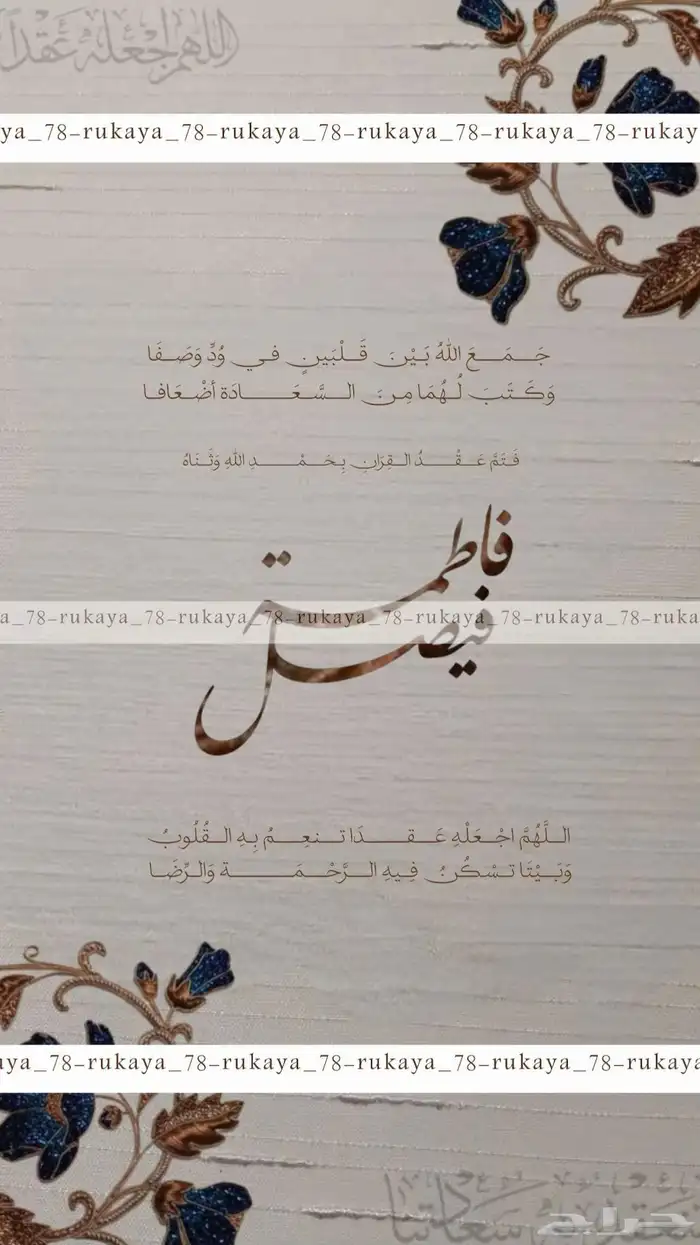 اللهم اجعله عقدًا
ya_78-rukaya_78-rukaya_78-rukaya_78-rukaya_78-rukay
جَمَعَ اللهُ بَيْنَ قَلْبَينِ في وُدٍّ وَصَفَا
وَكَتَبَ لَهُمَا مِنَ السَّعَادَة أضْعَافا
فَتَمَّ عَقْدُ القِرَانِ بِحَمْدِ اللهِ وَثَنَاهُ
فاطمة
a_78-rukaya_78-rukaya_78-rukaya_78-rukaya_78-ruka
فيصل
اللَّهُمَّ اجْعَلْهِ عَقدَا تنعِمُ بِهِ القُلُوبُ
وَبَيْتَا تسْكُنُ فِيهِ الرَّحْمَة وَالرِّضَا
uya_78-rukaya_78-rukaya_78-rukaya_78-rukaya_78-rukaya
حراج